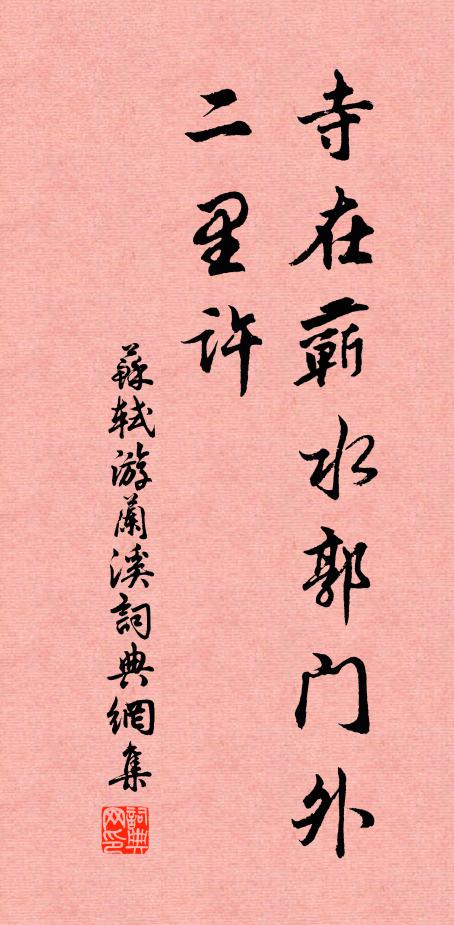 寺在蘄水郭門外
二里許
蘇軾游蘭溪詞典網集
詞典
网印